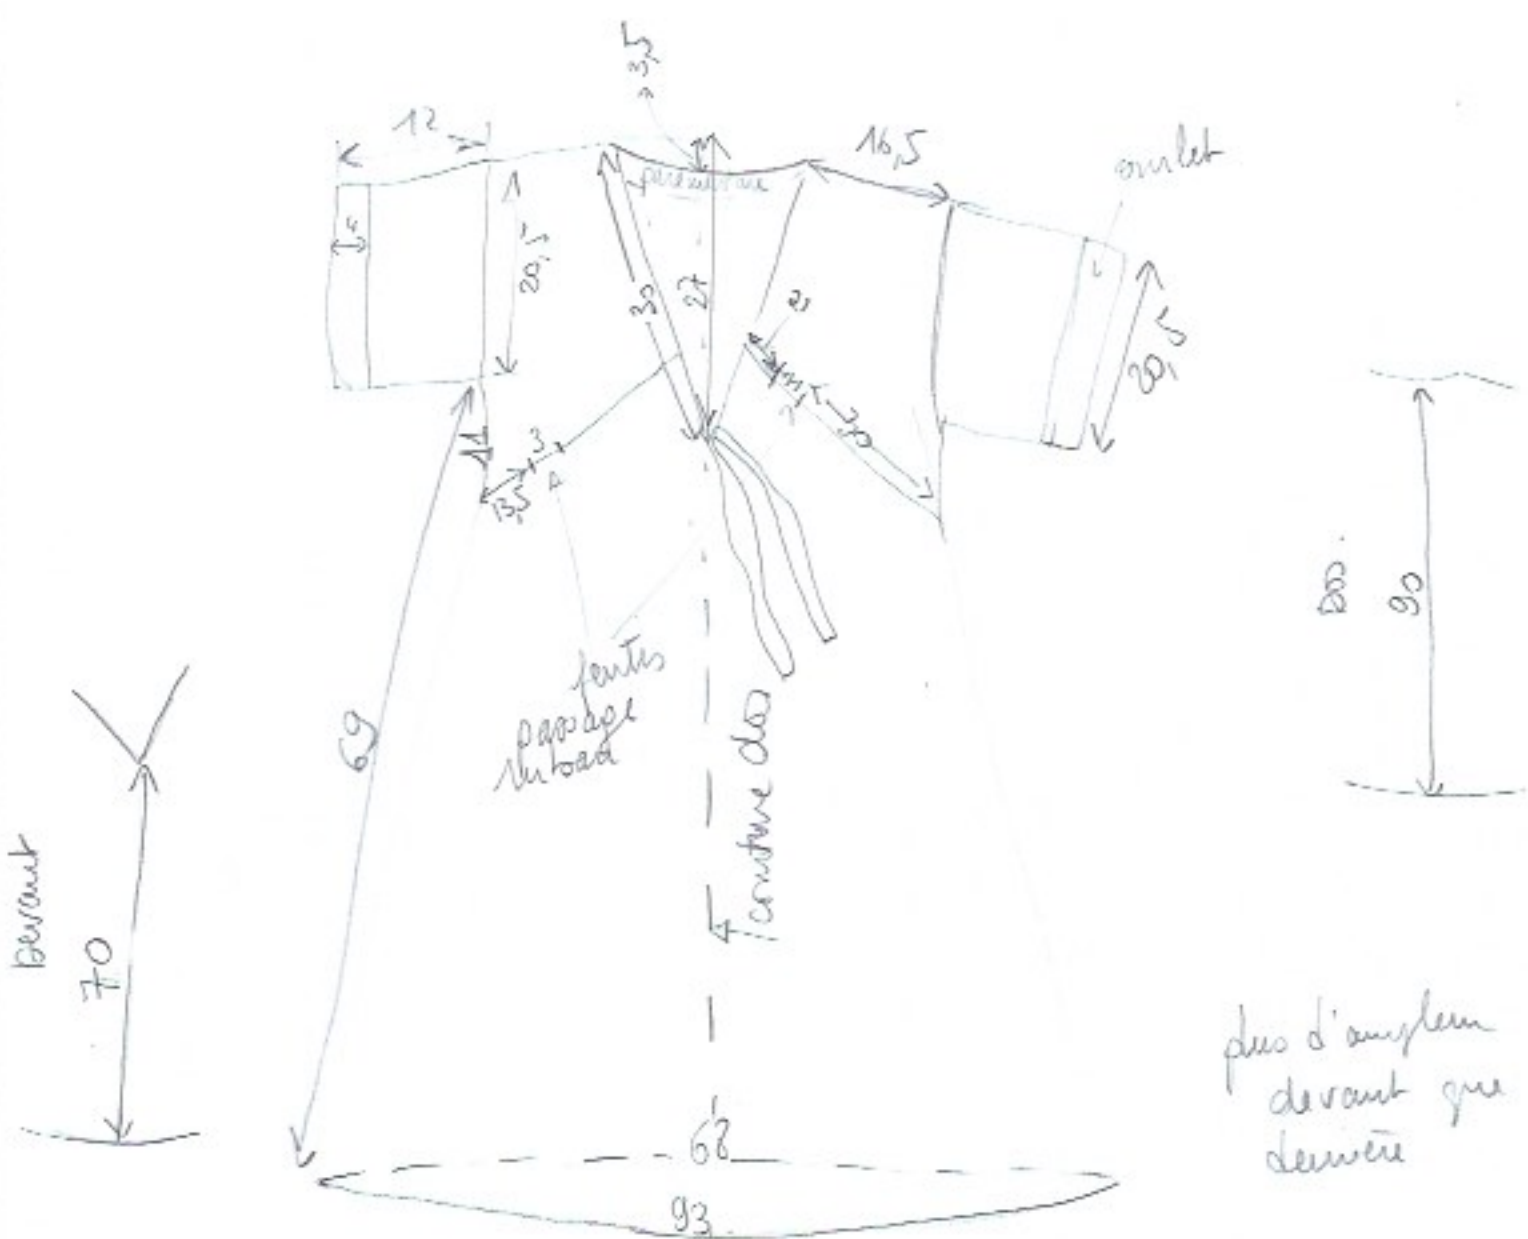 3,5
12
16,5
ourlet
parementure
4
20,5
30
27
20,5
11
3
13,5
fentes
passage
69
couture dos
Devant
70
Dos
90
plus d'ampleur
devant que
derrière
68
93